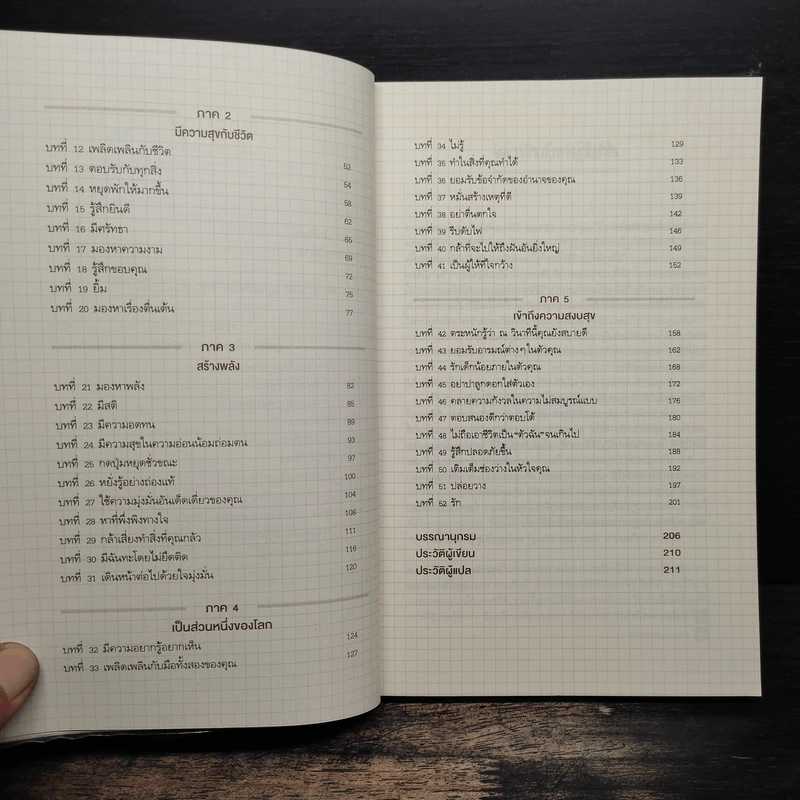 ภาค 2
มีความสุขกับชีวิต
บทที่ 12 เพลิดเพลินกับชีวิต 52
บทที่ 13 ตอบรับกับทุกสิ่ง 54
บทที่ 14 หยุดพักให้มากขึ้น 58
บทที่ 15 รู้สึกยินดี 62
บทที่ 16 มีศรัทธา 65
บทที่ 17 มองหาความงาม 69
บทที่ 18 รู้สึกขอบคุณ 72
บทที่ 19 ยิ้ม 75
บทที่ 20 มองหาเรื่องตื่นเต้น 77
ภาค 3
สร้างพลัง
บทที่ 21 มองหาพลัง 82
บทที่ 22 มีสติ 85
บทที่ 23 มีความอดทน 89
บทที่ 24 มีความสุขในความอ่อนน้อมถ่อมตน 93
บทที่ 25 กดปุ่มหยุดชั่วขณะ 97
บทที่ 26 หยั่งรู้อย่างถ่องแท้ 100
บทที่ 27 ใช้ความมุ่งมั่นอันเด็ดเดี่ยวของคุณ 104
บทที่ 28 หาที่พึ่งพิงทางใจ 108
บทที่ 29 กล้าเสี่ยงทำสิ่งที่คุณกลัว 111
บทที่ 30 มีฉันทะโดยไม่ยึดติด 116
บทที่ 31 เดินหน้าต่อไปด้วยใจมุ่งมั่น 120
ภาค 4
เป็นส่วนหนึ่งของโลก
บทที่ 32 มีความอยากรู้อยากเห็น 124
บทที่ 33 เพลิดเพลินกับมือทั้งสองของคุณ 127
บทที่ 34 ไม่รู้ 129
บทที่ 35 ทำในสิ่งที่คุณทำได้ 133
บทที่ 36 ยอมรับข้อจำกัดของอำนาจของคุณ 136
บทที่ 37 หมั่นสร้างเหตุที่ดี 139
บทที่ 38 อย่าตื่นตกใจ 142
บทที่ 39 รีบดับไฟ 146
บทที่ 40 กล้าที่จะไปให้ถึงฝันอันยิ่งใหญ่ 149
บทที่ 41 เป็นผู้ให้ที่ใจกว้าง 152
ภาค 5
เข้าถึงความสงบสุข
บทที่ 42 ตระหนักรู้ว่า ณ วินาทีนี้คุณยังสบายดี 158
บทที่ 43 ยอมรับอารมณ์ต่างๆ ในตัวคุณ 162
บทที่ 44 รักเด็กน้อยภายในตัวคุณ 168
บทที่ 45 อย่าปาลูกดอกใส่ตัวเอง 172
บทที่ 46 คลายความกังวลในความไม่สมบูรณ์แบบ 176
บทที่ 47 ตอบสนองดีกว่าตอบโต้ 180
บทที่ 48 ไม่ถือเอาชีวิตเป็น "ตัวฉัน" จนเกินไป 184
บทที่ 49 รู้สึกปลอดภัยขึ้น 188
บทที่ 50 เติมเต็มช่องว่างในหัวใจคุณ 192
บทที่ 51 ปล่อยวาง 197
บทที่ 52 รัก 201
บรรณานุกรม 206
ประวัติผู้เขียน 210
ประวัติผู้แปล 211